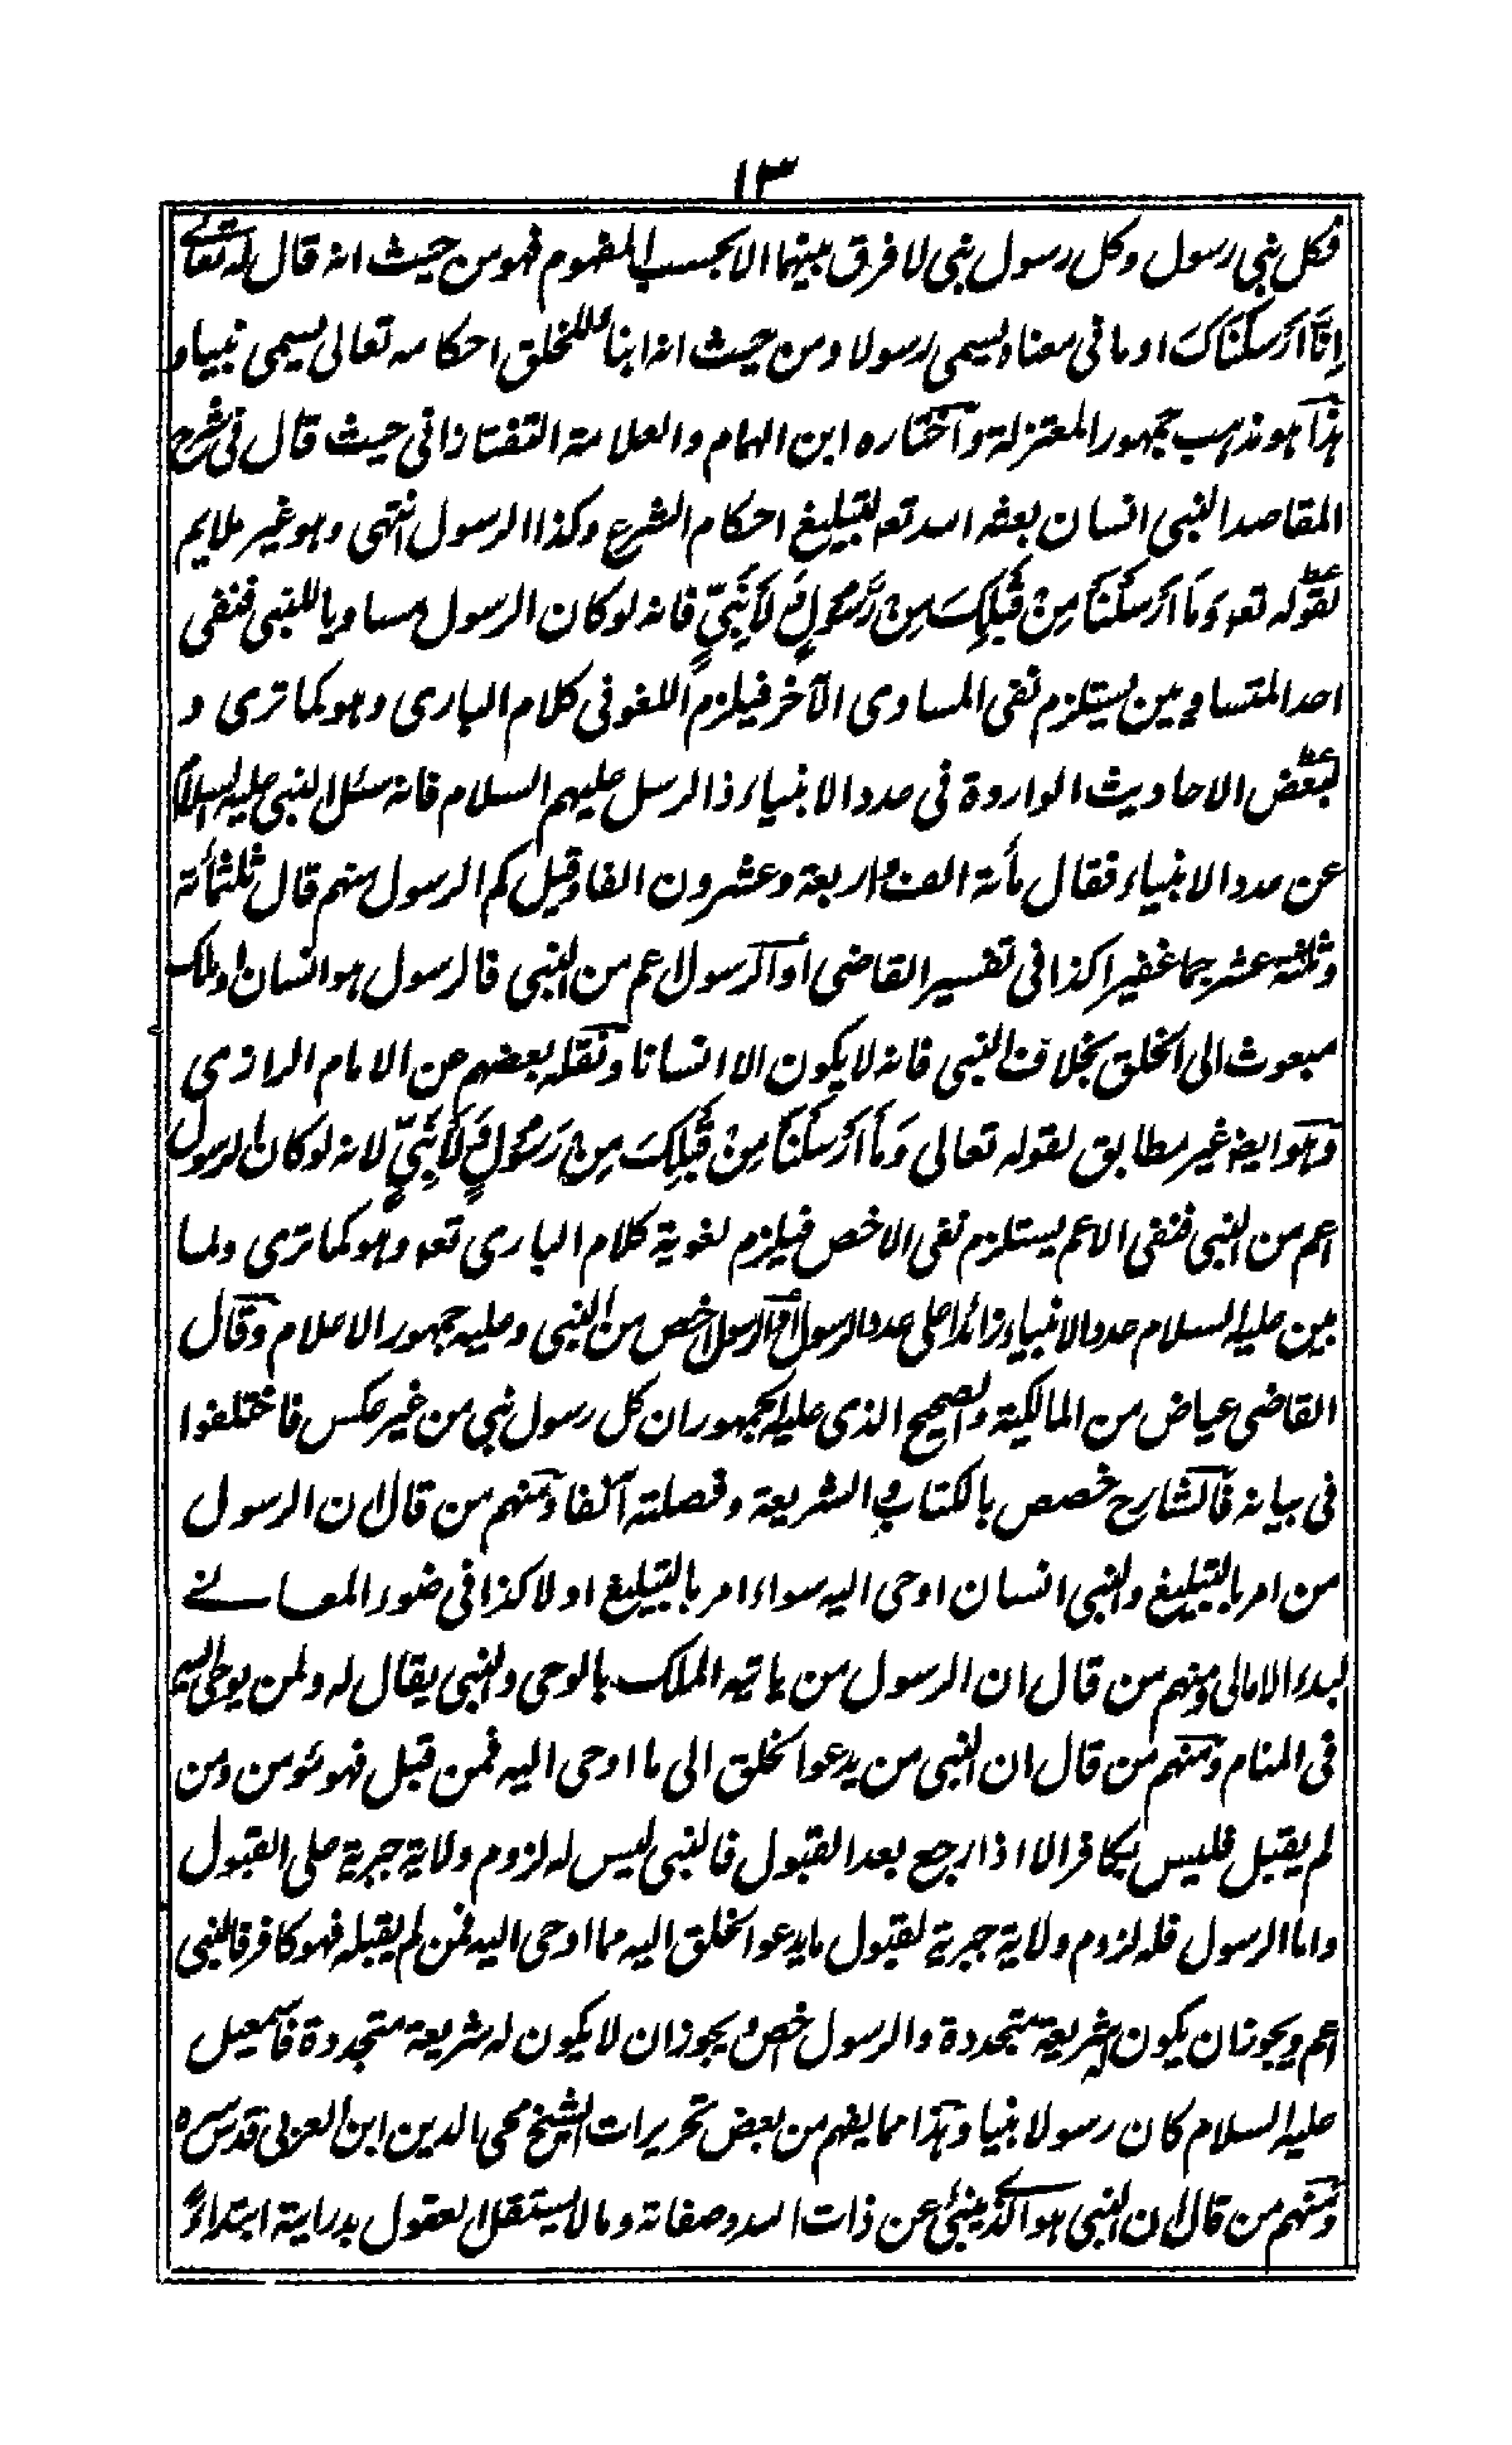 ١٣
فكل نبى رسول وكل رسول نبى لا فرق بينهما الا بحسب المفهوم فهو من حيث انه قال له تعالے
اِنَّا اَرْسَلْنَاكَ او ما فى معناه يسمى رسولا ومن حيث انه انبأ للخلق احكامه تعالى يسمى نبيا و
هذا هو مذهب جمهور المعتزلة واختاره ابن الهمام والعلامة التفتازانى حيث قال فى شرح
المقاصد النبى انسان بعثه الله تعه لتبليغ احكام الشرع وكذا الرسول انتهى وهو غير ملايم
لقوله تعه وَمَا اَرْسَلْنَا مِنْ قَبْلِكَ مِنْ رَّسُوْلٍ وَّلَا نَبِيٍّ فانه لو كان الرسول مساويا للنبى فنفى
احد المتساويين يستلزم نفى المساوى الآخر فيلزم اللغو فى كلام البارى وهو كما ترى و
لبعض الاحاديث الواردة فى عدد الانبياء والرسل عليهم السلام فانه سئل النبى عليه السلام
عن عدد الانبياء فقال مأئة الف واربعة وعشرون الفا وقيل كم الرسول منهم قال ثلثمأئة
وثلثة عشر جما غفيرا كذا فى تفسير القاضى أو الرسول اعم من النبى فالرسول هو انسان او ملك
مبعوث الى الخلق بخلاف النبى فانه لا يكون الا انسانا ونقله بعضهم عن الامام الرازى
وهو ايضا غير مطابق لقوله تعالى وَمَا اَرْسَلْنَا مِنْ قَبْلِكَ مِنْ رَسُوْلٍ وَّلَا نَبِيٍّ لانه لو كان الرسول
اعم من النبى فنفى الاعم يستلزم نفى الاخص فيلزم لغوية كلام البارى تعه وهو كما ترى ولما
بين عليه السلام عدد الانبياء زائدا على عدد الرسول او الرسول اخص من النبى وعليه جمهور الاعلام وقال
القاضى عياض من المالكية والصحيح الذى عليه الجمهور ان كل رسول نبى من غير عكس فاختلفوا
فى بيانه فالشارح خصص بالكتاب والشريعة وفصلته آنفا ومنهم من قال ان الرسول
من امر بالتبليغ والنبى انسان اوحى اليه سواء امر بالتبليغ او لا كذا فى ضوء المعالے
لبدء الامالى ومنهم من قال ان الرسول من ياتيه الملك بالوحى والنبى يقال له ولمن يوحى اليه
فى المنام ومنهم من قال ان النبى من يدعو الخلق الى ما اوحى اليه فمن قبل فهو مؤمن ومن
لم يقبل فليس بكافر الا اذا رجع بعد القبول فالنبى ليس له لزوم ولاية جبرية على القبول
واما الرسول فله لزوم ولاية جبرية لقبول ما يدعو الخلق اليه مما اوحى اليه فمن لم يقبله فهو كافر فالنبى
اعم ويجوز ان يكون له شريعة متجددة والرسول اخص ويجوز ان لا يكون له شريعة متجددة فاسمعيل
عليه السلام كان رسولا نبيا وهذا مما يفهم من بعض تحريرات الشيخ محى الدين ابن العربى قدس سره
ومنهم من قال ان النبى هو الذے ينبئ عن ذات الله وصفاته وما لا يستقل العقول بدراية ابتداءً